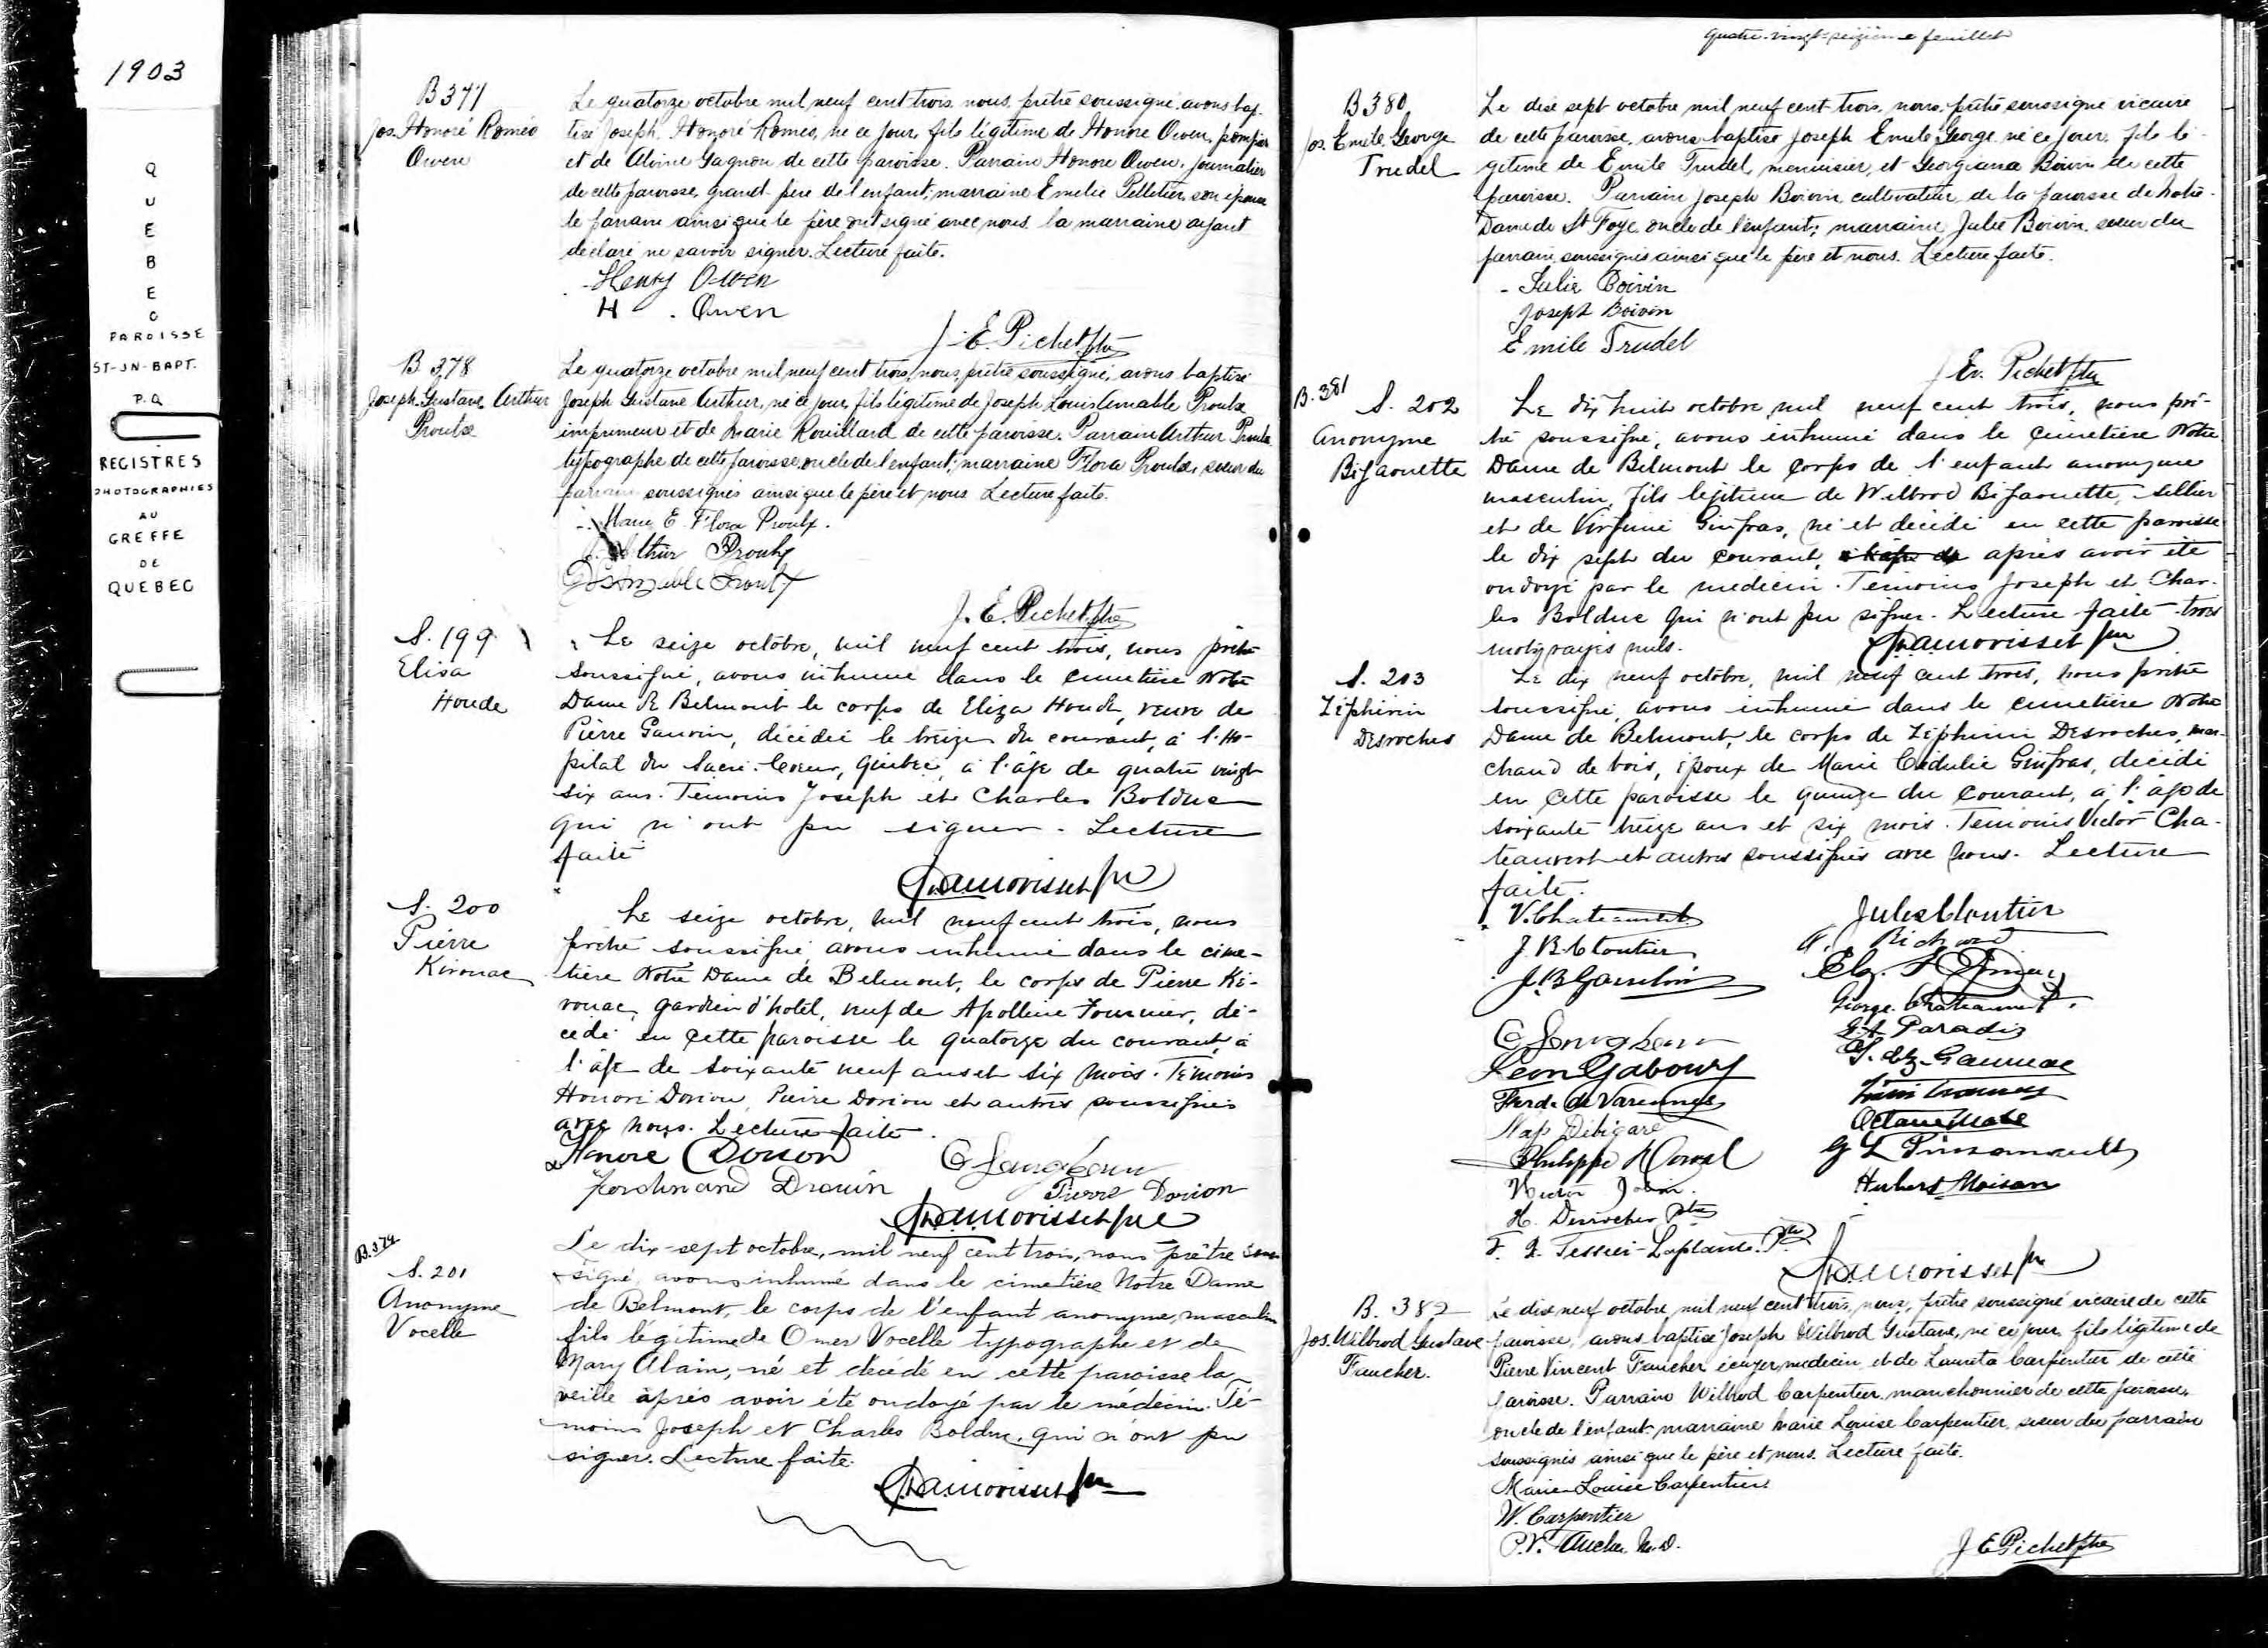 1903
QUEBEC
PAROISSE
ST-JN-BAPT.
P.Q
REGISTRES
PHOTOGRAPHIES
AU
GREFFE
DE
QUEBEC
B 377
Jos. Honoré Roméo
Owen
Le quatorze octobre mil neuf cent trois, nous, prêtre soussigné, avons bap-
tisé Joseph, Honoré Roméo, né ce jour, fils légitime de Honoré Owen, pompier
et de Alvine Gagnon de cette paroisse. Parrain Honoré Owen, journalier
de cette paroisse, grand-père de l'enfant; marraine Emelie Pelletier son épouse
le parrain ainsi que le père ont signé avec nous la marraine ayant
déclaré ne savoir signer. Lecture faite.
Henry Owen
H. Owen
J. E. Pichet ptre
B 378
Joseph Gustave Arthur
Proulx
Le quatorze octobre mil neuf cent trois, nous, prêtre soussigné, avons baptisé
Joseph Gustave Arthur, né ce jour, fils légitime de Joseph Louis Amable Proulx
imprimeur et de Marie Rouillard de cette paroisse. Parrain Arthur Proulx
typographe de cette paroisse, oncle de l'enfant; marraine Flora Proulx, soeur du
parrain soussignés ainsi que le père et nous Lecture faite.
Marie E Flora Proulx.
J. Arthur Proulx
Proulx
J. E. Pichet ptre
S. 199
Elisa
Houde
Le seize octobre, mil neuf cent trois, nous prêtre
soussigné, avons inhumé dans le cimetière Notre
Dame de Belmont le corps de Eliza Houde, veuve de
Pierre Gauvin, décédée le treize du courant, à l'Hô-
pital du Sacré-Coeur, Québec, à l'âge de quatre vingt
six ans. Témoins Joseph et Charles Bolduc
qui n'ont pu signer. Lecture
faite
Morisset ptre
S. 200
Pierre
Kirouac
Le seize octobre, mil neuf cent trois, nous
prêtre soussigné avons inhumé dans le cime-
tière Notre Dame de Belmont, le corps de Pierre Ki-
rouac, gardien d'hotel, veuf de Apolline Fournier, dé-
cédé en cette paroisse le quatorze du courant, à
l'âge de soixante neuf ans et six mois. Témoins
Honoré Dorion, Pierre Dorion et autres soussignés
avec nous. Lecture faite.
Honoré Dorion
Ferdinand Drouin
Pierre Dorion
Morisset ptre
B.379
S. 201
Anonyme
Vocelle
Le dix-sept octobre, mil neuf cent trois, nous prêtre sous-
signé, avons inhumé dans le cimetière Notre Dame
de Belmont, le corps de l'enfant anonyme, masculin
fils légitime de Omer Vocelle typographe et de
Mary Alain, né et décédé en cette paroisse la
veille après avoir été ondoyé par le médecin. Té-
moins Joseph et Charles Bolduc, qui n'ont pu
signer. Lecture faite.
Morisset ptre
quatre-vingt-seizième feuillet
B 380
Jos. Emile George
Trudel
Le dix sept octobre mil neuf cent trois, nous, prêtre soussigné vicaire
de cette paroisse, avons baptisé Joseph Emile George né ce jour, fils lé-
gitime de Emile Trudel, menuisier, et Georgiana Boivin de cette
paroisse. Parrain Joseph Boivin cultivateur de la paroisse de Notre-
Dame de St Foye oncle de l'enfant; marraine Julie Boivin, soeur du
parrain, soussignés ainsi que le père et nous. Lecture faite.
Julie Boivin
Joseph Boivin
Emile Trudel
J Ed. Pichet ptre
B. 381
S. 202
Anonyme
Bijaouette
Le dix huit octobre, mil neuf cent trois, nous prê-
tre soussigné, avons inhumé dans le cimetière Notre
Dame de Belmont le corps de l'enfant anonyme
masculin, fils légitime de Wilbrod Bijaouette, sellier
et de Virginie Gingras, né et décédé en cette paroisse
le dix sept du courant, après avoir été
ondoyé par le médecin. Témoins Joseph et Char-
les Bolduc qui n'ont pu signer. Lecture faite - trois
mots rayés nuls.
Morisset ptre
S. 203
Zéphirin
Desroches
Le dix neuf octobre, mil neuf cent trois, nous prêtre
soussigné, avons inhumé dans le cimetière Notre
Dame de Belmont, le corps de Zéphirin Desroches, mar-
chand de bois, époux de Marie Cédulie Gingras, décédé
en cette paroisse le quinze du courant, à l'âge de
soixante treize ans et six mois. Témoins Victor Cha-
teauvert et autres soussignés avec nous. Lecture
faite.
V. Chateauvert
J. B. Cloutier
Jules Cloutier
Richard
George Chateauvert
G. A. Paradis
Léon Gaboury
Ferd. de Varennes
Nap Débigaré
Octave Mabe
Herbert Moisan
H. Desroches Ptre
F. X. Tessier-Laplante. Ptre
Morisset ptre
B. 382
Jos. Wilbrod Gustave
Faucher.
Le dix neuf octobre, mil neuf cent trois, nous, prêtre soussigné vicaire de cette
paroisse, avons baptisé Joseph Wilbrod Gustave, né ce jour, fils légitime de
Pierre Vincent Faucher écuyer, médecin, et de Laureta Carpentier de cette
paroisse. Parrain Wilbrod Carpentier, manchonnier de cette paroisse,
oncle de l'enfant, marraine Marie Louise Carpentier, soeur du parrain
soussignés ainsi que le père et nous. Lecture faite.
Marie-Louise Carpentier
W. Carpentier
P.V. Faucher M.D.
J E Pichet ptre